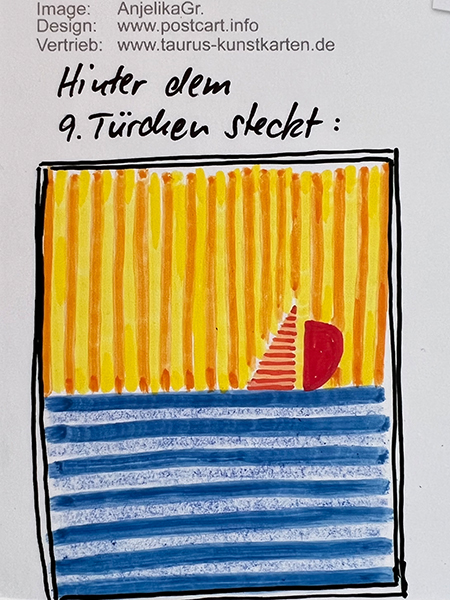 Image: AnjelikaGr.
Design: www.postcart.info
Vertrieb: www.taurus-kunstkarten.de
Hinter dem
9. Türchen steckt: